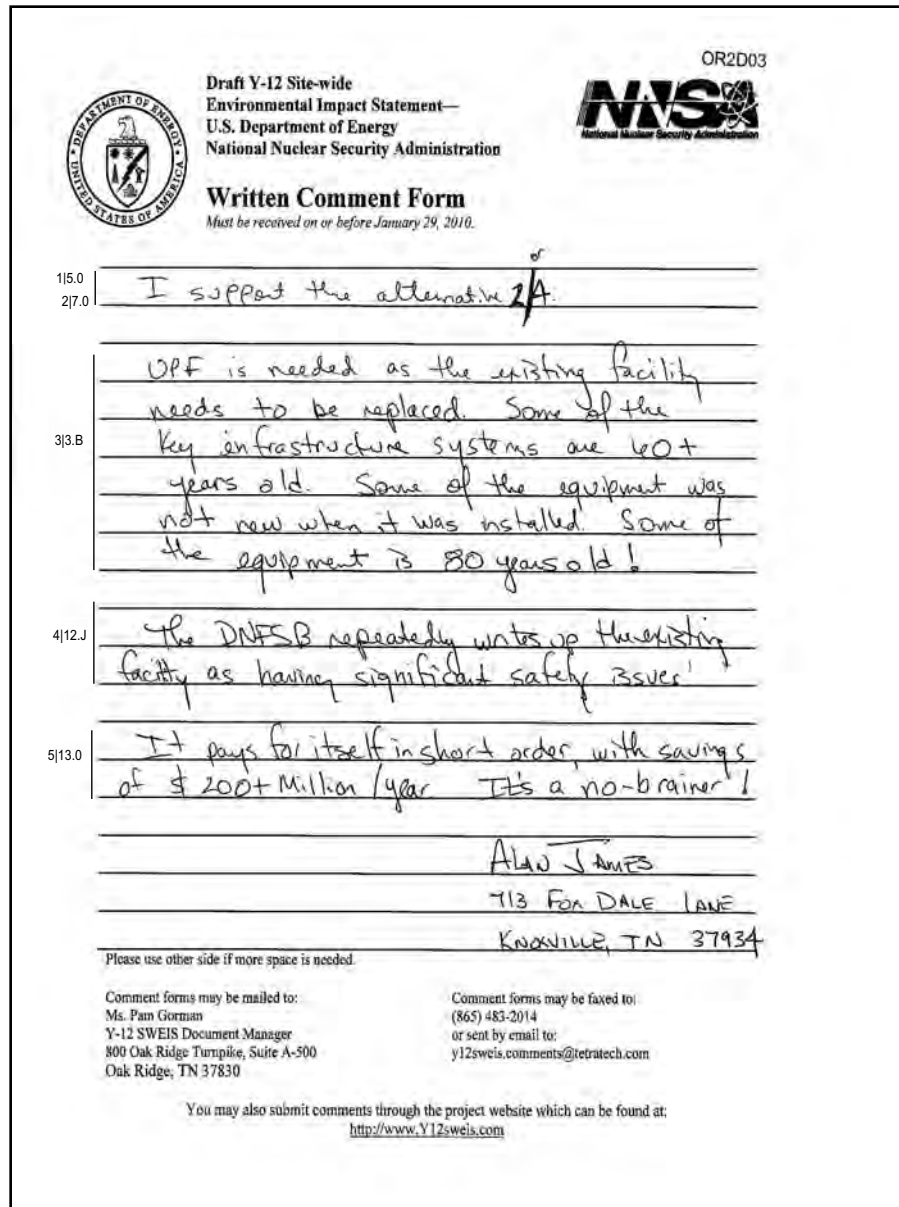 OR2D03
DEPARTMENT OF ENERGY
UNITED STATES OF AMERICA
Draft Y-12 Site-wide
Environmental Impact Statement—
U.S. Department of Energy
National Nuclear Security Administration
NNSA
National Nuclear Security Administration
Written Comment Form
Must be received on or before January 29, 2010.
1|5.0
2|7.0
or
I support the alternative 2/4.
3|3.B
UPF is needed as the existing facility
needs to be replaced. Some of the
key infrastructure systems are 60+
years old. Some of the equipment was
not new when it was installed. Some of
the equipment is 80 years old!
4|12.J
The DNFSB repeatedly writes up the existing
facility as having significant safety issues!
5|13.0
It pays for itself in short order, with savings
of $ 200+ Million / year It's a no-brainer!
ALAN JAMES
713 FOX DALE LANE
KNOXVILLE, TN 37934
Please use other side if more space is needed.
Comment forms may be mailed to:
Ms. Pam Gorman
Y-12 SWEIS Document Manager
800 Oak Ridge Turnpike, Suite A-500
Oak Ridge, TN 37830
Comment forms may be faxed to:
(865) 483-2014
or sent by email to:
y12sweis.comments@tetratech.com
You may also submit comments through the project website which can be found at:
http://www.Y12sweis.com